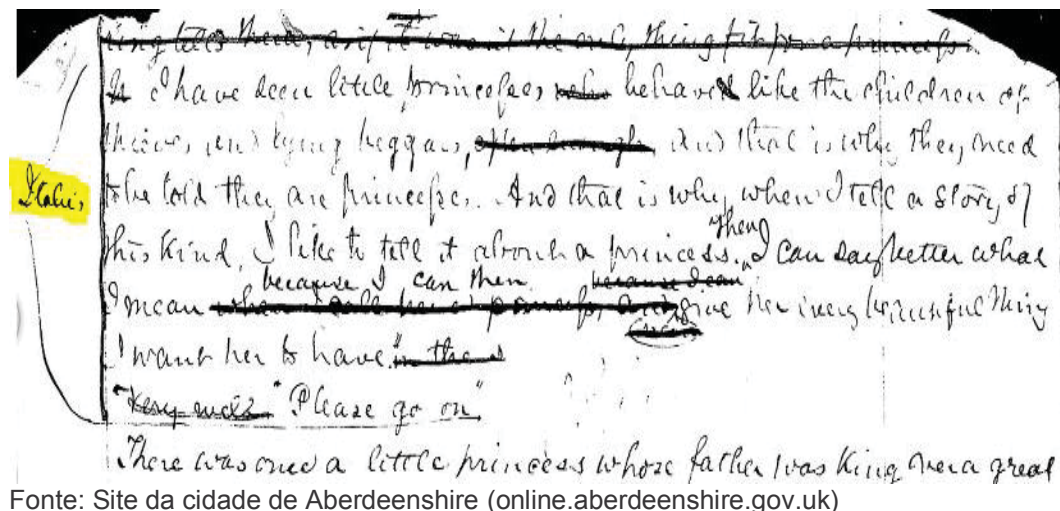 them, as if it was not the only thing fit for a princess.
I have seen little princesses who behaved like the children of
thieves and lying beggars, often enough, and that is why they need
Italics
to be told they are princesses. And that is why, when I tell a story of
this kind, I like to tell it about a princess. Then I can say better what
because I can then because I can
I mean give her every beautiful thing
I want her to have." in the
"Very well" "Please go on."
There was once a little princess whose father was king over a great
Fonte: Site da cidade de Aberdeenshire (online.aberdeenshire.gov.uk)